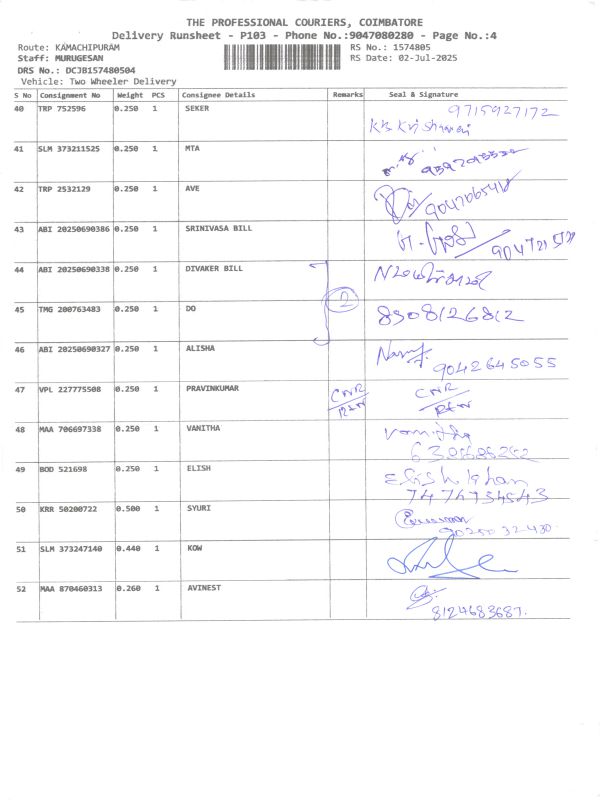 THE PROFESSIONAL COURIERS, COIMBATORE
Delivery Runsheet - P103 - Phone No.:9047080280 - Page No.:4
Route: KAMACHIPURAM RS No.: 1574805
Staff: MURUGESAN RS Date: 02-Jul-2025
DRS No.: DCJB157480504
Vehicle: Two Wheeler Delivery
S No Consignment No Weight PCS Consignee Details Remarks Seal & Signature
40 TRP 752596 0.250 1 SEKER 9715927172
41 SLM 373211525 0.250 1 MTA
42 TRP 2532129 0.250 1 AVE
43 ABI 20250690386 0.250 1 SRINIVASA BILL
44 ABI 20250690338 0.250 1 DIVAKER BILL
2
45 TMG 200763483 0.250 1 DO 8908126812
46 ABI 20250690327 0.250 1 ALISHA 9042645055
47 VPL 227775508 0.250 1 PRAVINKUMAR CNR CNR
48 MAA 706697338 0.250 1 VANITHA
49 BOD 521698 0.250 1 ELISH Elish khan
50 KRR 50200722 0.500 1 SYURI
51 SLM 373247140 0.440 1 KOW
52 MAA 870460313 0.260 1 AVINEST
8124683687.